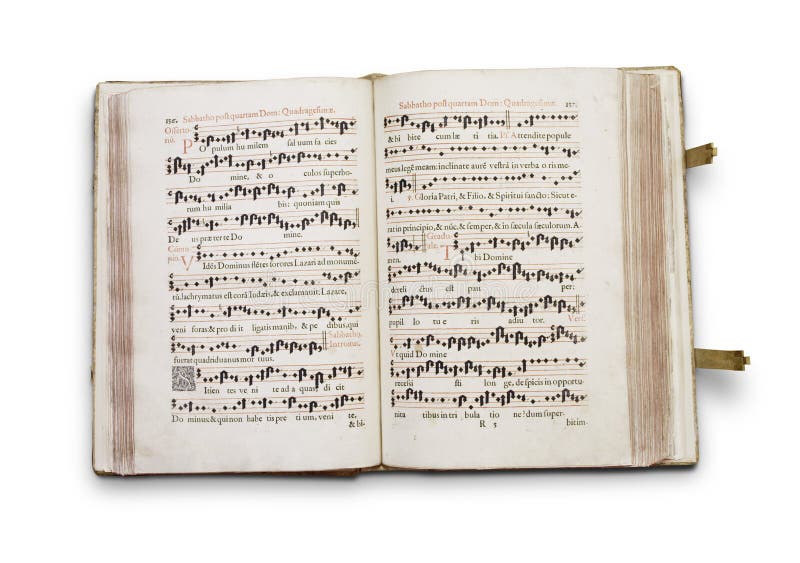 130. Sabbatho post quartam Dom: Quadragesimæ
Offerto-
P Opulum hu milem sal uum fa cies
Do mine, & o culos superbo-
rum hu milia bis: quoniam quis
De us præter te Do mine.
V Idés Dominus flétes sorores Lazari ad monumé-
tũ, lachrymatus est corã Iudæis, & exclamauit: Lazare,
veni foras: & pro di it ligatis manib, & pe dibus, qui
fuerat quadriduanus mor tuus. Sabbatho,
Introitus.
S Itien tes ve ni te ad a quas, di cit
Do minus: & qui non habe tis pre ti um, veni te,
& bi-
Sabbatho post quartam Dom: Quadragesimæ
& bi bite cum læ ti tia. Ps. Attendite popule
meus legẽ meam: inclinate aurẽ vestrã in verba o ris me-
i. Gloria Patri, & Filio, & Spiritui sancto: Sicut e-
rat in principio, & nũc, & semper, & in sæcula sæculorum. A
men. Gradu-
ale. T bi Domine
dereli ctus est pau per:
pupil lo tu e ris adiu tor. Vers.
Vt quid Do mine
recessi sti lon ge, despicis in opportu-
nita tibus in tri bula tio ne? dum super-
R 5 bitim-